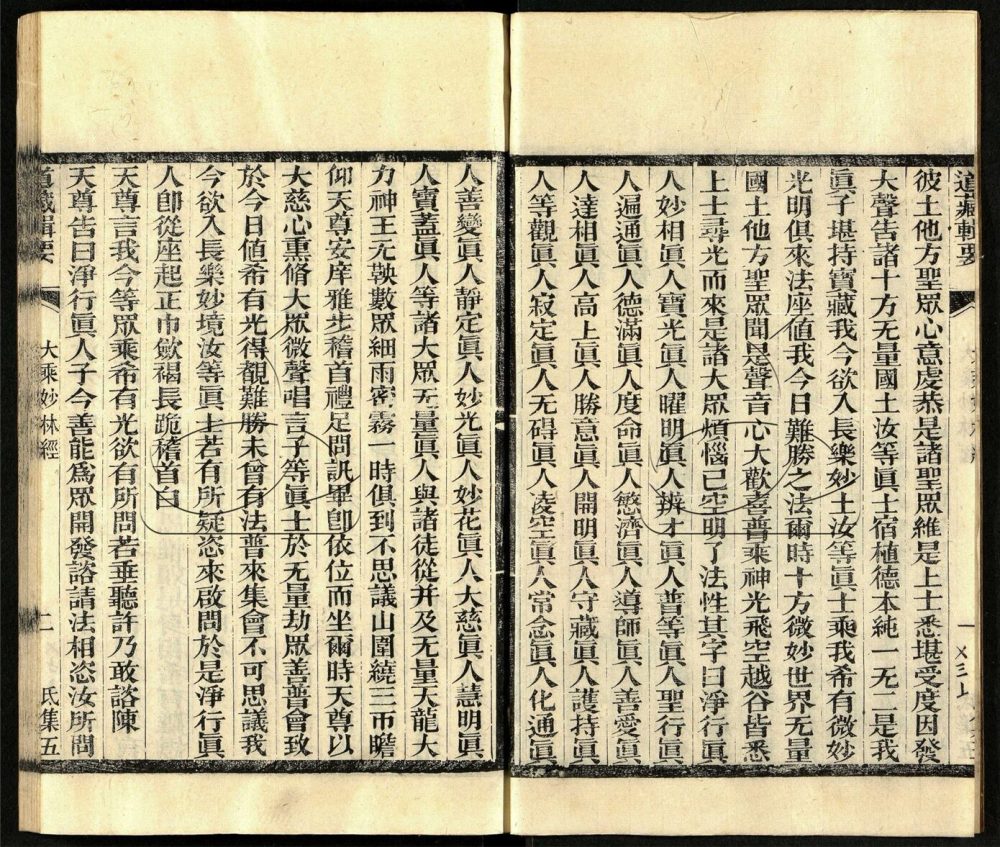 道藏輯要
彼土他方聖眾心意虔恭是諸聖眾維是上士悉堪受度因發
大聲告諸十方无量國土汝等眞士宿植德本純一无二是我
眞子堪持寶藏我今欲入長樂妙土汝等眞士乘我希有微妙
光明俱來法座値我今日難勝之法爾時十方微妙世界无量
國土他方聖眾聞是聲音心大歡喜普乘神光飛空越谷皆悉
上士尋光而來是諸大眾煩惱已空明了法性其字曰淨行眞
人妙相眞人寶光眞人曜明眞人辨才眞人普等眞人聖行眞
人遍通眞人德滿眞人度命眞人慜濟眞人導師眞人善愛眞
人達相眞人高上眞人勝意眞人開明眞人守藏眞人護持眞
人等觀眞人寂定眞人无碍眞人凌空眞人常念眞人化通眞
人善變眞人靜定眞人妙光眞人妙花眞人大慈眞人慧明眞
人寶蓋眞人等諸大眾无量眞人與諸徒從并及无量天龍大
力神王无鞅數眾細雨密霧一時俱到不思議山圍繞三帀瞻
仰天尊安庠雅步稽首禮足問訊畢卽依位而坐爾時天尊以
大慈心熏脩大眾微聲唱言子等眞士於无量劫眾善普會致
於今日値希有光得覩難勝未曾有法普來集會不可思議我
今欲入長樂妙境汝等眞士若有所疑恣來啟問於是淨行眞
人卽從座起正巾斂褐長跪稽首白
天尊言我今等眾乘希有光欲有所問若垂聽許乃敢諮陳
天尊告曰淨行眞人子今善能爲眾開發諮請法相恣汝所問
道藏輯要 大乘妙林經 二 氐集五